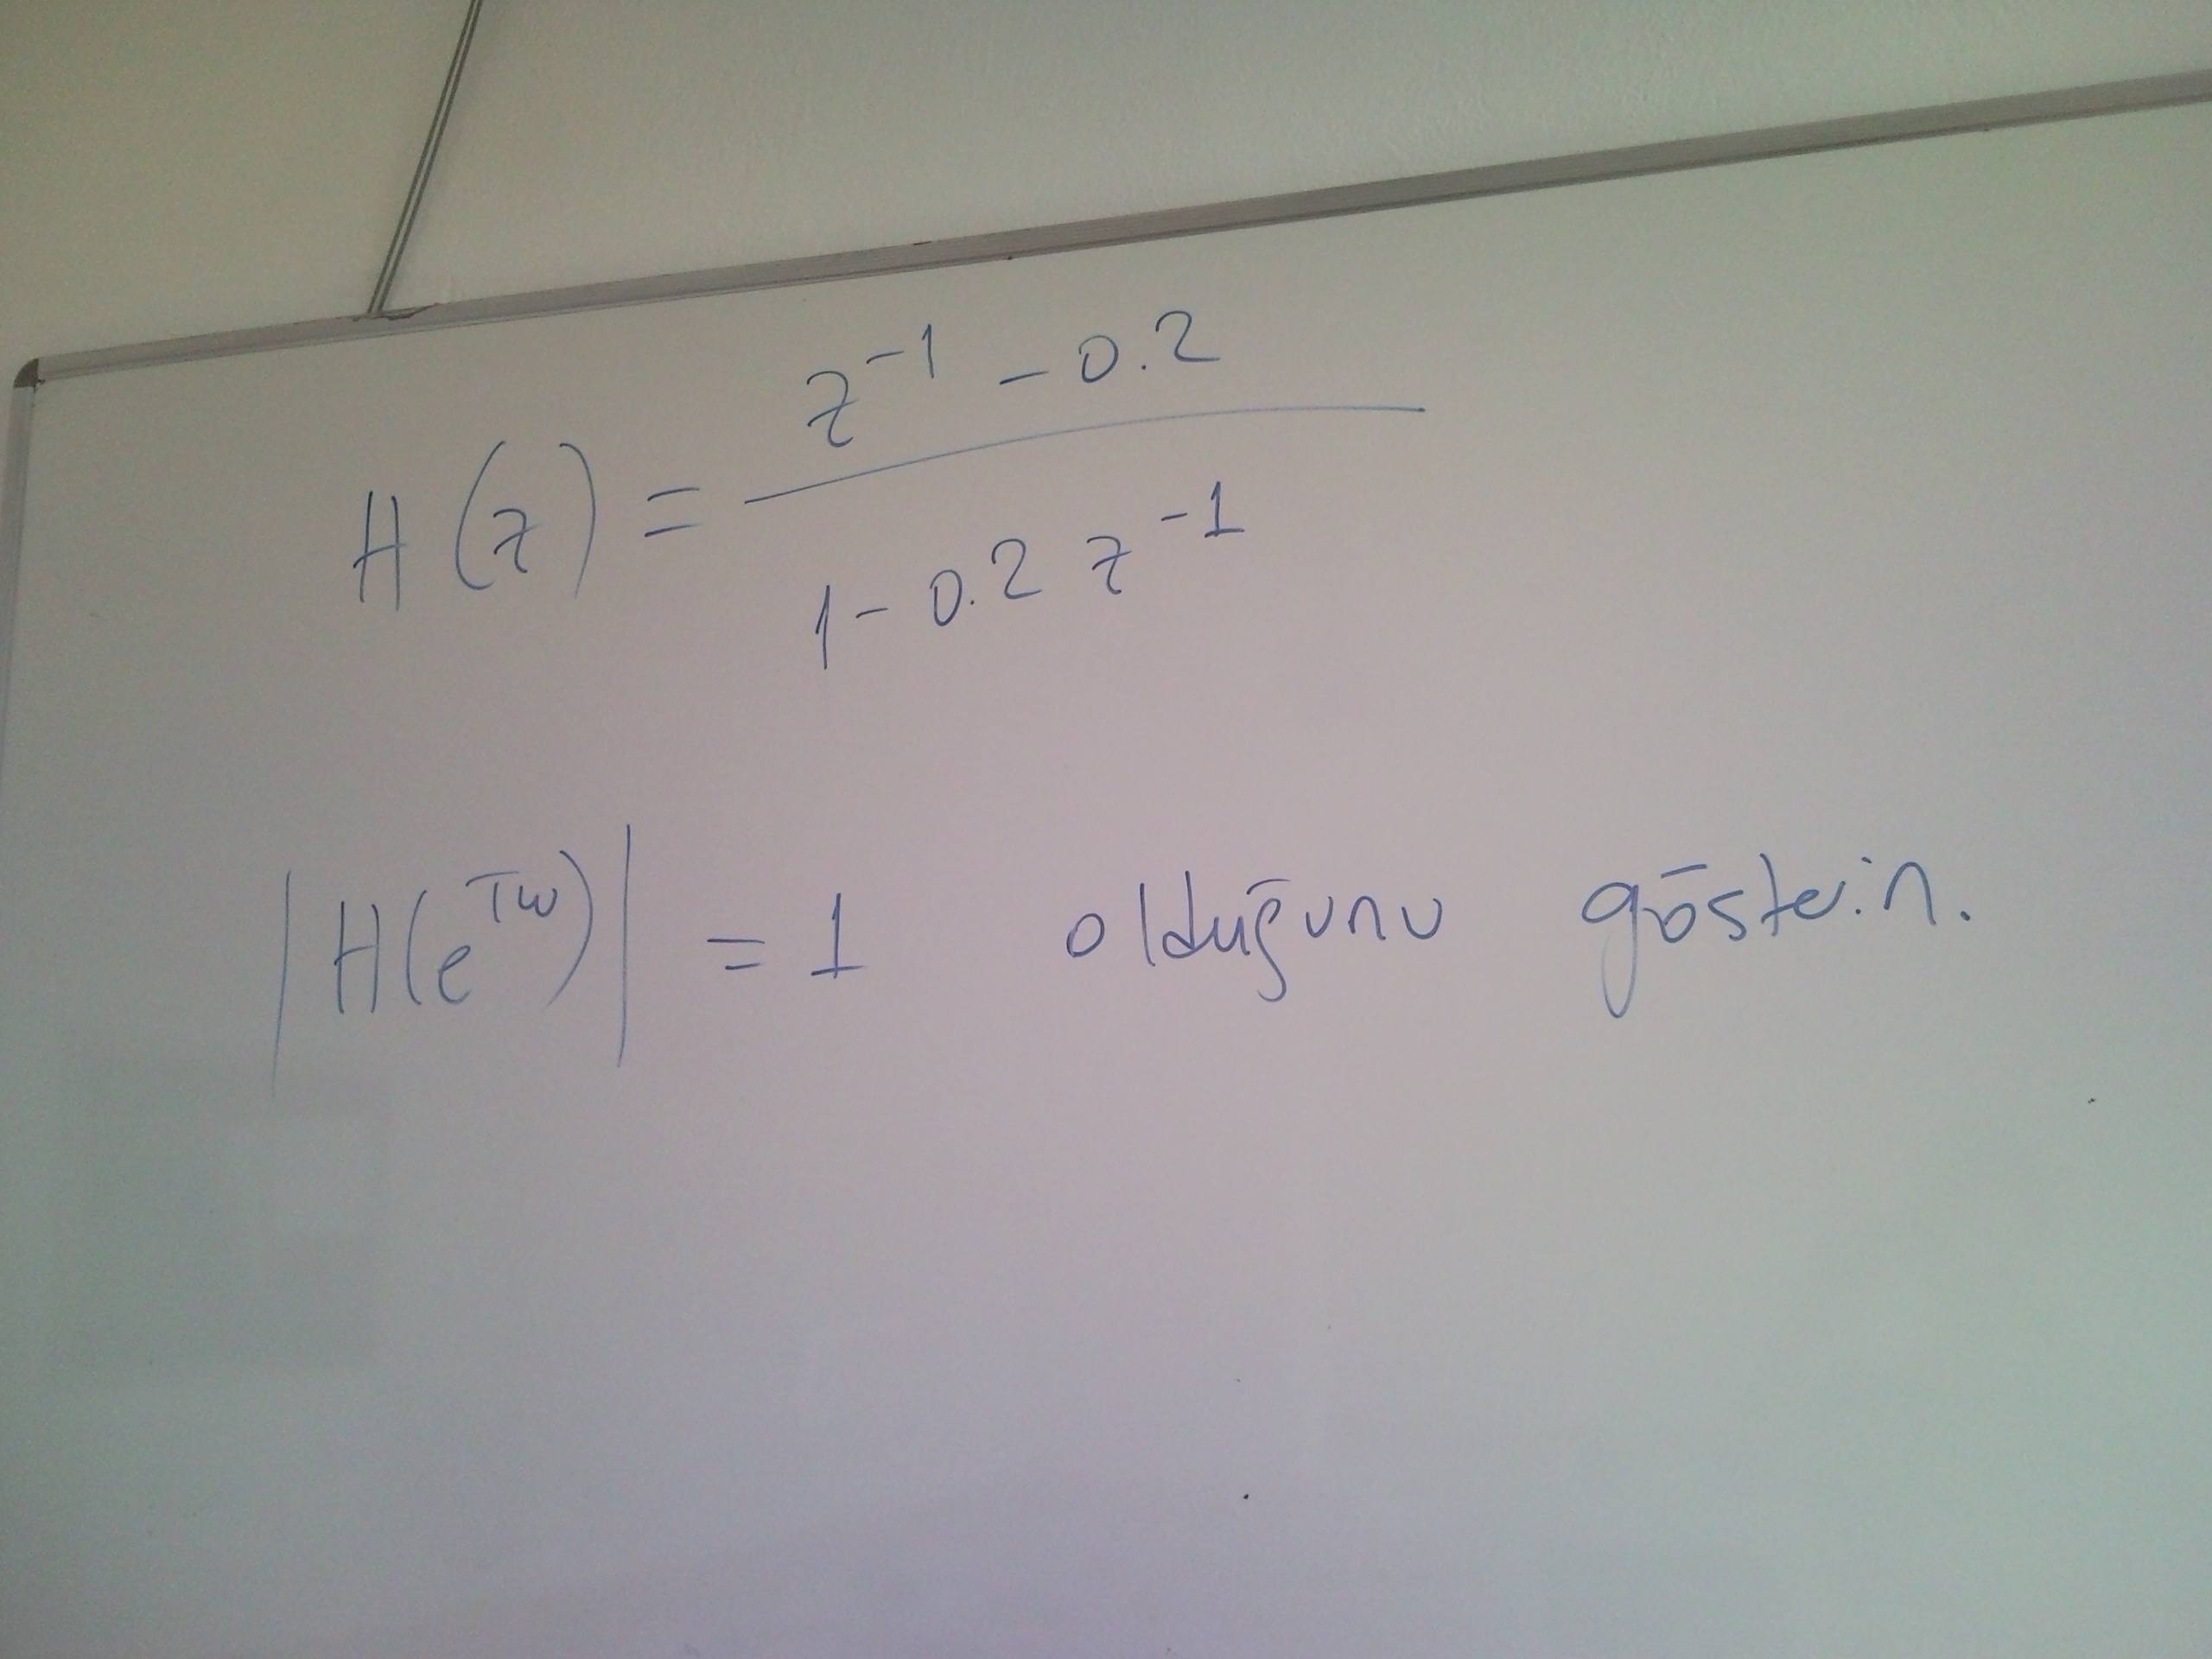 H(z) = z⁻¹ - 0.2 / 1 - 0.2 z⁻¹
|H(e^{Tw})| = 1 olduğunu gösterin.